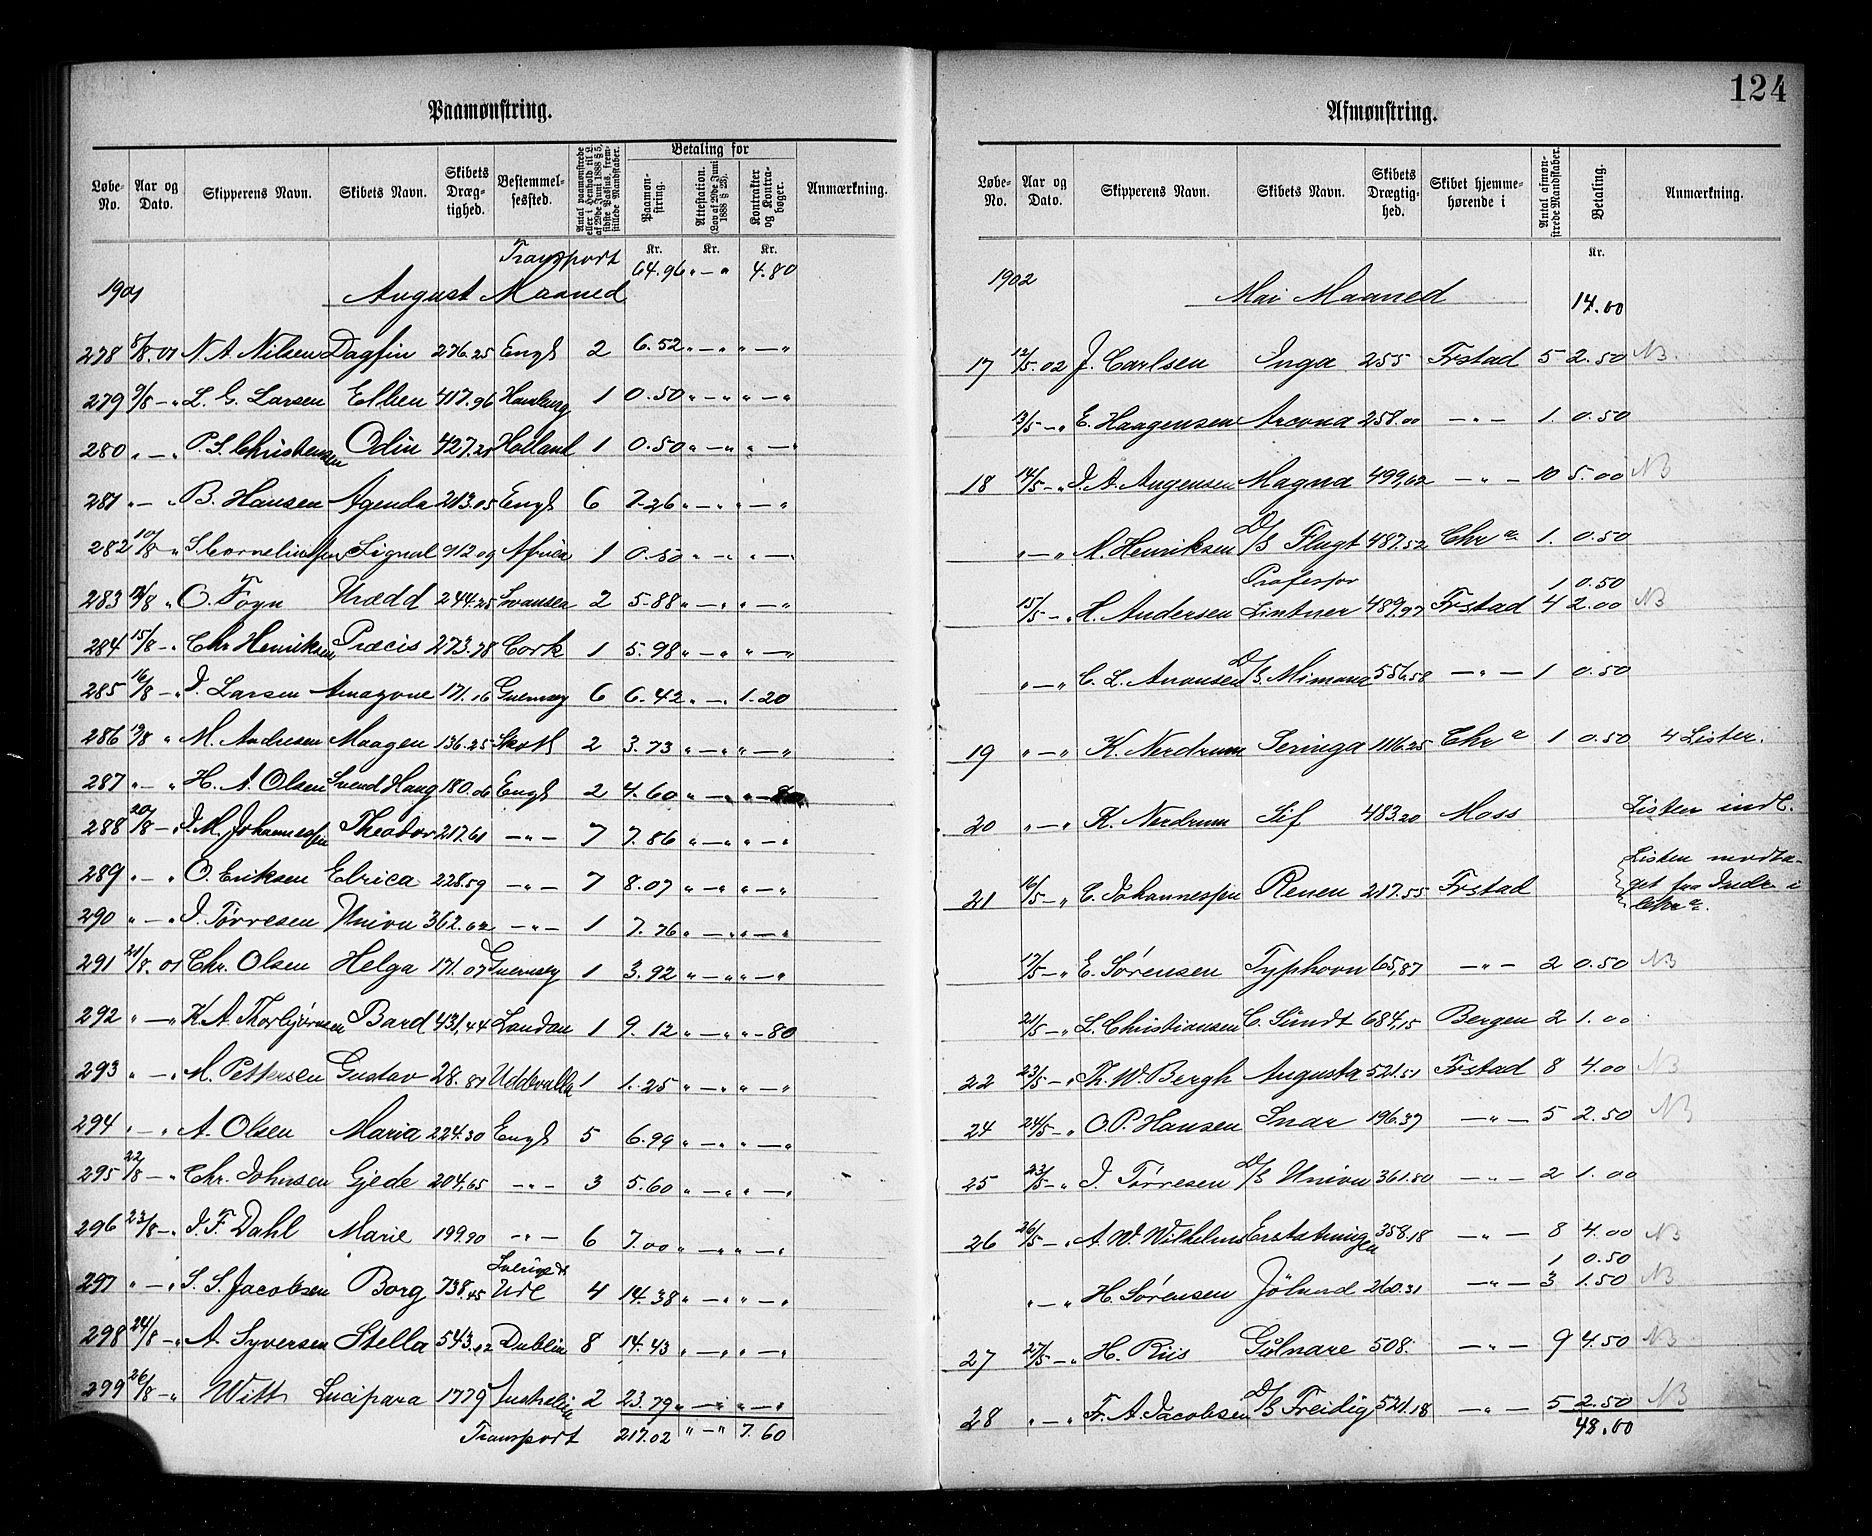 124
Paamønstring.
Løbe-No. Aar og Dato. Skipperens Navn. Skibets Navn. Skibets Dræg-tighed. Bestemmel-sessted. Antal paamønstrede eller i Henhold til L. af 29de Juni 1888 § 5, sidste Passus, frem-stillede Mandskaber. Betaling for Paamøn-string. Attestation. (Lov af 29de Juni 1888 § 23). Kontrakter og Kontra-bøger. Anmærkning.
Kr. Kr. Kr.
Transport 64.96 „ — „ 4.80
1901 August Maaned
278 8/8.01 N. A. Nilsen Dagfin 276.25 Engl 2 6.52 „ — „ „ — „
279 9/8 — „ L. G. Larsen Ellen 417.96 Hamburg 1 0.50 „ — „ „ — „
280 „ — „ P. S. Christensen Odin 427.21 Holland 1 0.50 „ — „ „ — „
281 „ — „ B. Hansen Agenda 213.05 Engl 6 7.26 „ — „ „ — „
282 10/8 „ S. Corneliussen Signal 912.09 Africa 1 0.50 „ — „ „ — „
283 12/8 „ O. Foyn Urædd 244.25 Svansea 2 5.88 „ — „ „ — „
284 15/8 — „ Chr Henriksen Præcis 273.78 Cork 1 5.98 „ — „ „ — „
285 16/8 — „ I. Larsen Amazone 171.16 Guernsey 6 6.42 „ — „ 1.20
286 19/8 „ M. Andresen Maagen 136.25 Skotl 2 3.73 „ — „ „ — „
287 „ — „ H. A. Olsen Svend Haug 180.06 Engl 2 4.60 „ — „ „ — 80
288 20/8 — „ I. M. Johannessen Theodor 217.61 — „ — 7 7.86 „ — „ „ — „
289 „ — „ O. Eriksen Elrica 228.59 — „ — 7 8.07 „ — „ „ — „
290 „ — „ I. Tørresen Union 362.02 — „ — 1 7.76 „ — „ „ — „
291 21/8.01 Chr. Olsen Helga 171.07 Guernsey 1 3.92 „ — „ „ — „
292 „ — „ K. A. Thorbjørnsen Bard 431,44 London 1 9.12 „ — „ „ — 80
293 „ — „ M. Pettersen Gustav 28.81 Uddevalla 1 1.25 „ — „ „ — „
294 „ — „ A. Olsen Maria 224.30 Engl 5 6.99 „ — „ „ — „
295 22/8 — „ Chr. Johnsen Gjede 204,65 — „ — 3 5.60 „ — „ „ — „
296 23/8 — „ I. F. Dahl Marie 199.90 — „ — 6 7.00 „ — „ „ — „
297 „ — „ S. S. Jacobsen Borg 738.45 4 14.38 „ — „ „ — „
298 24/8 — „ A. Syversen Stella 543.12 Dublin 8 14.43 „ — „ „ — „
299 26/8 — „ Witt Lucipara 1779 Australien 2 23.79 „ — „ „ — „
Transport 217.02 „ — „ 7.60
Afmønstring.
Løbe-No. Aar og Dato. Skipperens Navn. Skibets Navn. Skibets Drægtig-hed. Skibet hjemme-hørende i Antal afmøn-strede Mandskaber. Betaling. Anmærkning.
Kr.
1902 Mai Maaned 14.00
17 12/5.02 J. Carlsen Inga 255 Frstad 5 2.50 NB.
13/5 — „ E. Haagensen Arcona 258.00 — „ — 1. 0.50
18 14/5 — „ I. A. Augensen Magna 499,62 — „ — 10 5.00 NB
„ — „ A. Henriksen D/S Flugt 487.52 Chr a 1. 0.50
Professor 1 0.50
15/5 — „ H. Andersen Lintner 489.97 Frstad 4 2.00 NB
„ — „ C. L. Aronsen D/S. Mimona 556.58 — „ — 1 0.50
19 „ — „ K. Nerdrum Seringa 1116.25 Chr a 1 0.50 4 Lister.
20 „ — „ K. Nerdrum Sif 483.20 Moss Listen indl.
21 16/5 — „ C. Johannessen Renen 217.55 Frstad Listen modta-
get fra Inde i
Chr a.
17/5 — „ E. Sørensen Typhoon 65,87 — „ — 2 0.50 NB
21/5 — „ L. Christiansen C. Sundt 684,15 Bergen 2 1.00
22 23/5 — „ Th. W. Bergh Augusta 521.51 Frstad 8 4.00 NB
24 24/5 — „ O. P. Hansen Snar 196.37 — „ — 5 2.50 NB
25 23/5 — „ I. Tørresen D/S Union 361.80 — „ — 2 1.00
26 26/5 — „ A. W. Wilhelms Erstatningen 358.18 — „ — 8 4.00 NB
1 0.50
„ — „ H. Sørensen Jølund 260.31 — „ — 3 1.50 NB
27 27/5 — „ H. Riis Gulnare 508. — „ — 9 4.50 NB
28 „ — „ Fr. A. Jacobsen D/S Freidig 521.18 — „ — 5 2.50 NB
48.00